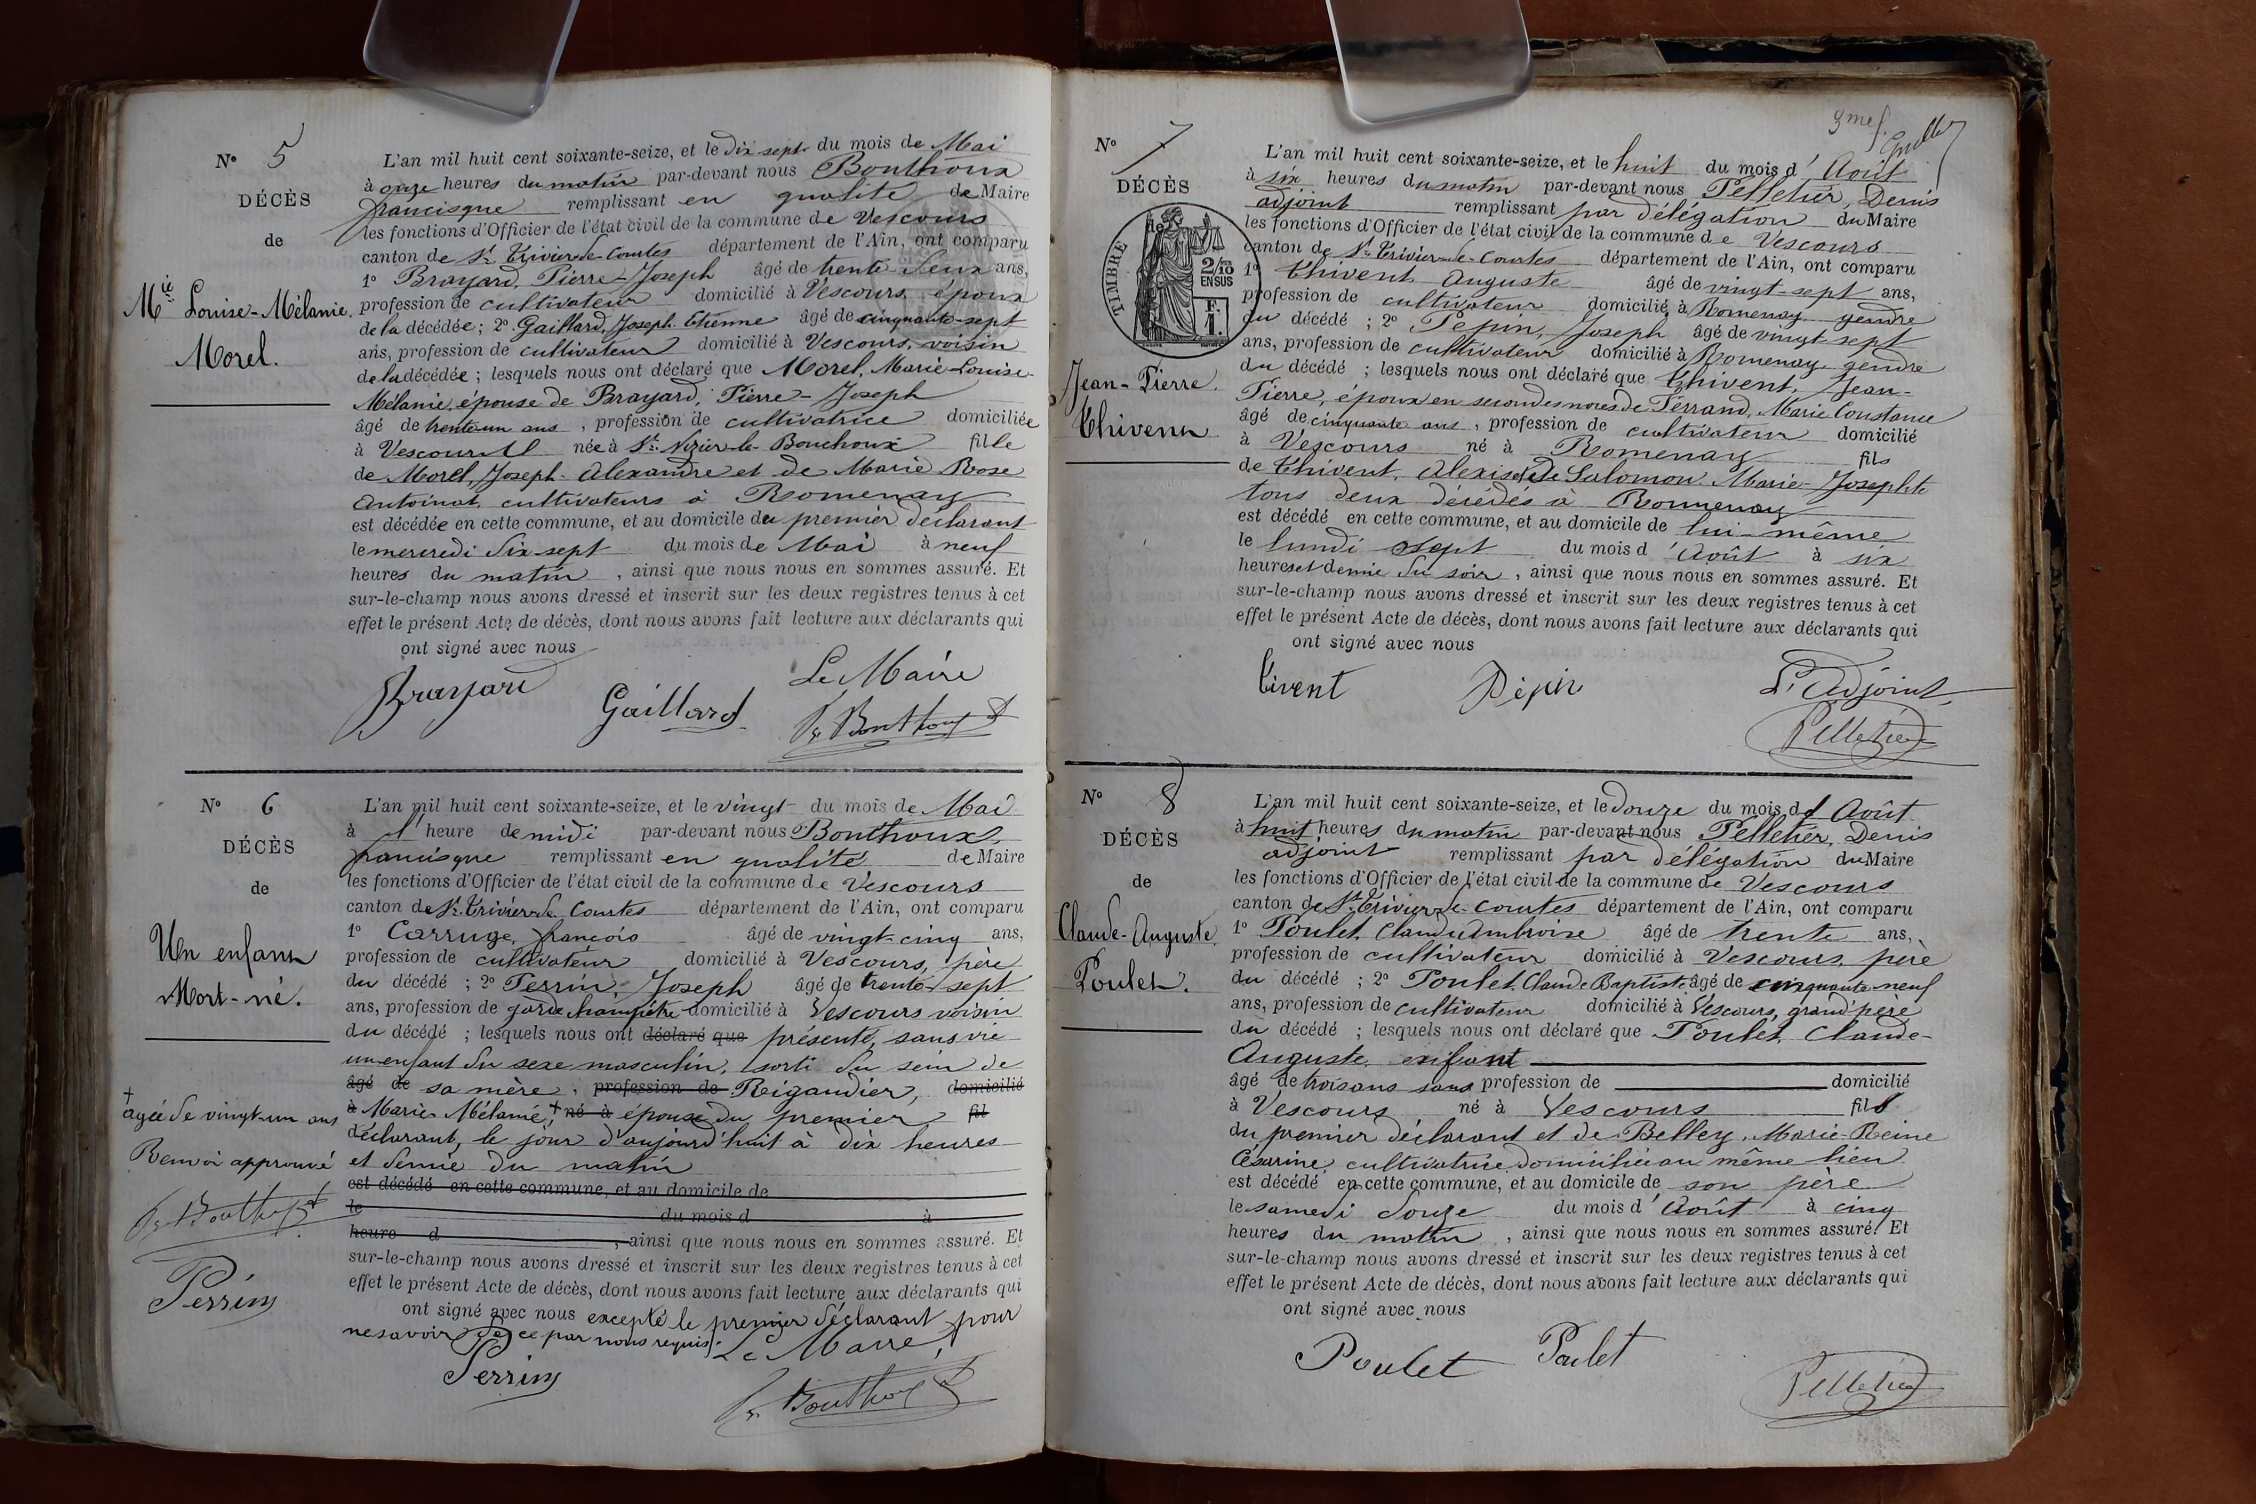 N° 5
DÉCÈS
de
Mie Louise-Mélanie
Morel.
L'an mil huit cent soixante-seize, et le dix sept du mois de Mai
à onze heures du matin par-devant nous Bouthoux
francisque remplissant en qualité de Maire
les fonctions d'Officier de l'état civil de la commune de Vescours
canton de St Trivier-de-Courtes département de l'Ain, ont comparu
1° Brayard, Pierre-Joseph âgé de trente-deux ans,
profession de cultivateur domicilié à Vescours, époux
de la décédée ; 2° Gaillard, Joseph Etienne âgé de cinquante-sept
ans, profession de cultivateur domicilié à Vescours, voisin
de la décédée ; lesquels nous ont déclaré que Morel, Marie-Louise-
Mélanie, épouse de Brayard, Pierre-Joseph
âgé de trente-un ans, profession de cultivatrice domiciliée
à Vescours née à St Nizier-le-Bouchoux fille
de Morel, Joseph-Alexandre et de Marie Rose
Antoinat, cultivateurs à Romenay
est décédée en cette commune, et au domicile du premier déclarant
le mercredi dix-sept du mois de Mai à neuf
heures du matin, ainsi que nous nous en sommes assuré. Et
sur-le-champ nous avons dressé et inscrit sur les deux registres tenus à cet
effet le présent Acte de décès, dont nous avons fait lecture aux déclarants qui
ont signé avec nous
Le Maire
Brayard Gaillard Bouthoux
N° 6
DÉCÈS
de
Un enfant
Mort-né.
+
agée de vingt-un ans
Renvoi approuvé
Bouthoux
Perrin
L'an mil huit cent soixante-seize, et le vingt du mois de Mai
à l'heure de midi par-devant nous Bouthoux,
francisque remplissant en qualité de Maire
les fonctions d'Officier de l'état civil de la commune de Vescours
canton de St Trivier-de-Courtes département de l'Ain, ont comparu
1° Carruge, françois âgé de vingt-cinq ans,
profession de cultivateur domicilié à Vescours, père
du décédé ; 2° Perrin, Joseph âgé de trente-sept
ans, profession de garde champêtre domicilié à Vescours voisin
du décédé ; lesquels nous ont déclaré que présenté, sans vie
un enfant du sexe masculin, sorti du sein de
âgé de sa mère, profession de Rigaudier, domicilié
à Marie Mélanie, + né à épouse du premier fil
déclarant, le jour d'aujourd'huit à dix heures
et demie du matin
est décédé en cette commune, et au domicile de
le du mois d à
heure d , ainsi que nous nous en sommes assuré. Et
sur-le-champ nous avons dressé et inscrit sur les deux registres tenus à cet
effet le présent Acte de décès, dont nous avons fait lecture aux déclarants qui
ont signé avec nous excepté le premier déclarant pour
ne savoir de ce par nous requis. Le Maire,
Perrin Bouthoux
N° 7
DÉCÈS
de
TIMBRE
2/10 EN SUS
F. 1.
Jean-Pierre
Thivent
L'an mil huit cent soixante-seize, et le huit du mois d'Août
à six heures du matin par-devant nous Pelletier, Denis
adjoint remplissant par délégation du Maire
les fonctions d'Officier de l'état civil de la commune de Vescours
canton de St Trivier-de-Courtes département de l'Ain, ont comparu
1° Thivent Auguste âgé de vingt-sept ans,
profession de cultivateur domicilié à Romenay gendre
du décédé ; 2° Pepin, Joseph âgé de vingt-sept
ans, profession de cultivateur domicilié à Romenay gendre
du décédé ; lesquels nous ont déclaré que Thivent, Jean-
Pierre, époux en secondes noces de Ferrand, Marie Constance
âgé de cinquante ans, profession de cultivateur domicilié
à Vescours né à Romenay fils
de Thivent, Alexis et de Salomon Marie-Josephte
tous deux décédés à Romenay
est décédé en cette commune, et au domicile de lui-même
le lundi sept du mois d'Août à six
heures et demie du soir, ainsi que nous nous en sommes assuré. Et
sur-le-champ nous avons dressé et inscrit sur les deux registres tenus à cet
effet le présent Acte de décès, dont nous avons fait lecture aux déclarants qui
ont signé avec nous
Tivent Pépin L'Adjoint,
Pelletier
N° 8
DÉCÈS
de
Claude-Auguste
Poulet.
L'an mil huit cent soixante-seize, et le douze du mois d'Août
à huit heures du matin par-devant nous Pelletier, Denis
adjoint remplissant par délégation du Maire
les fonctions d'Officier de l'état civil de la commune de Vescours
canton de St Trivier-de-Courtes département de l'Ain, ont comparu
1° Poulet, Claude Ambroise âgé de trente ans,
profession de cultivateur domicilié à Vescours, père
du décédé ; 2° Poulet Claude Baptiste âgé de cinquante-neuf
ans, profession de cultivateur domicilié à Vescours, grand'père
du décédé ; lesquels nous ont déclaré que Poulet, Claude-
Auguste, enfant
âgé de trois ans sans profession de domicilié
à Vescours né à Vescours fils
du premier déclarant et de Belley, Marie-Reine
Césarine, cultivatrice domiciliée au même lieu
est décédé en cette commune, et au domicile de son père
le samedi douze du mois d'Août à cinq
heures du matin, ainsi que nous nous en sommes assuré. Et
sur-le-champ nous avons dressé et inscrit sur les deux registres tenus à cet
effet le présent Acte de décès, dont nous avons fait lecture aux déclarants qui
ont signé avec nous
Poulet Poulet
Pelletier